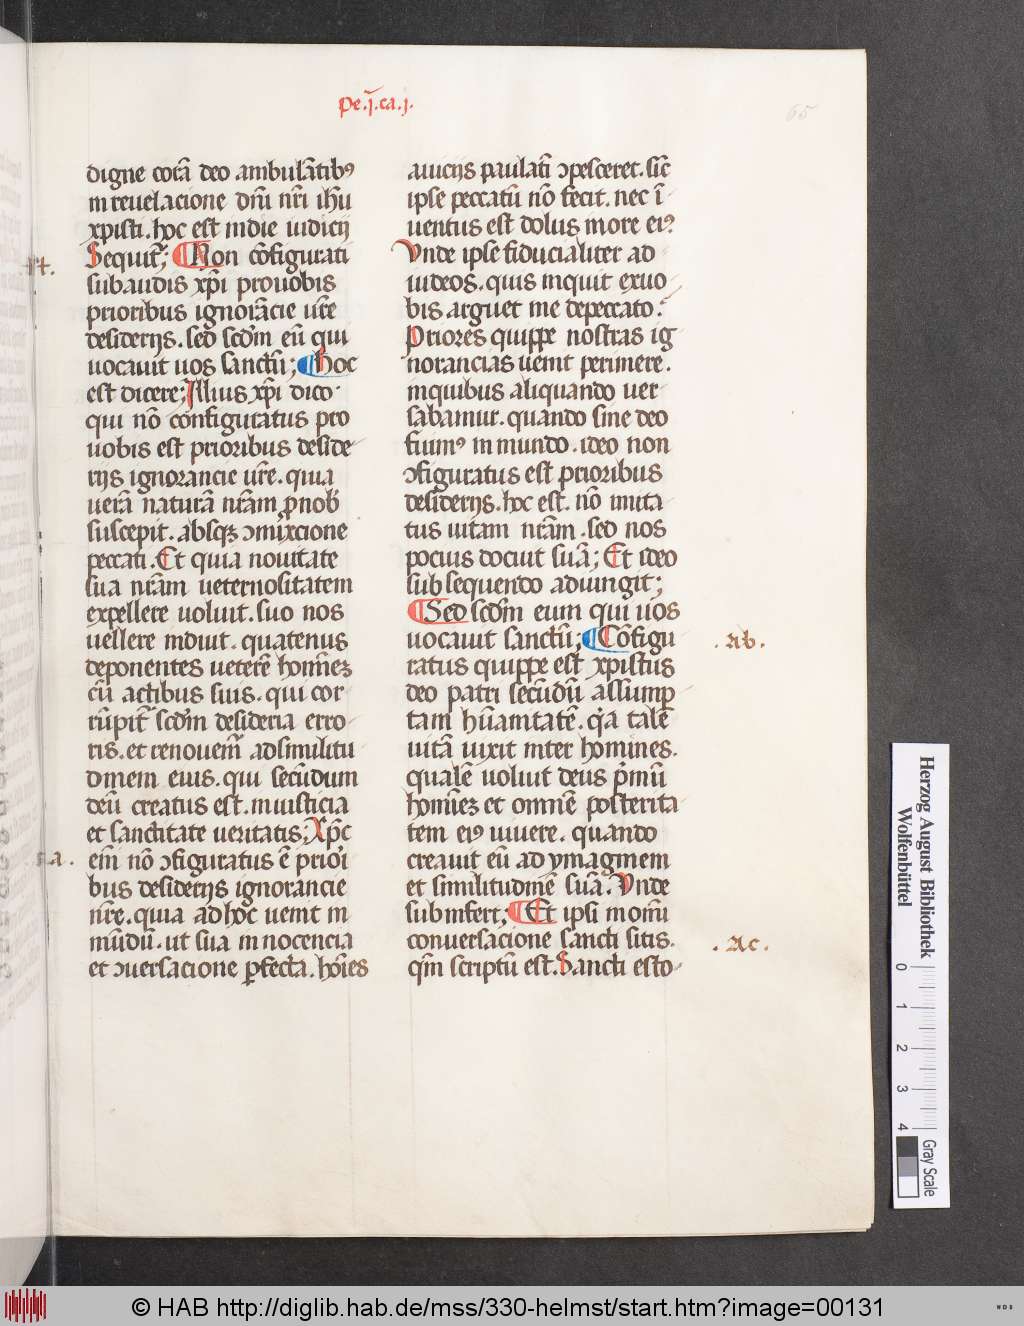 pe.j.ca.j.
65
digne corā deo ambulātibꝰ
in reuelacione dn̄i nr̄i ih̄u
xpisti.hoc est in die iudicij
Sequit̄; Non cōfigurati
subaudis xp̄i pro uobis
prioribus ignorācie ur̄e
desiderijs.sed scdm̄ eū qui
uocauit uos sanctū; Hoc
est dicere; Illius xp̄i dico.
qui nō configuratus pro
uobis est prioribus deside
rijs ignorancie ur̄e.quia
uerā naturā nr̄am ꝓ nob̄
suscepit.absqꝫ ↄmixcione
peccati.Et quia nouitate
sua nr̄am ueternositatem
expellere uoluit.suo nos
uellere induit.quatenus
deponentes ueterē homīeꝫ
cū actibus suis.qui cor
rūpit̄ scdm̄ desideria erro
ris.et renouem̄ ad similitu
dinem eius.qui secūdum
deū creatus est.in iusticia
et sanctitate ueritatis; Xp̄c
em̄ nō ↄfiguratus ē priori
bus desiderijs ignorancie
nr̄e.quia ad hoc uenit in
mūdū.ut sua innocencia
et ↄuersacione ꝑfecta.hoīes
a uicijs paulatī ↄpesceret.sic̄
ipse peccatū nō fecit.nec ī
uentus est dolus in ore eiꝰ
Vnde ipse fiducialiter ad
iudeos.quis inquit ex uo
bis arguet me de peccato?
Priores quippe nostras ig
norancias uenit perimere.
in quibus aliquando uer
sabamur.quando sine deo
fuimꝰ in mundo.ideo non
ↄfiguratus est prioribus
desiderijs.hoc est.nō imita
tus uitam nr̄am.sed nos
pocius docuit suā; Et ideo
subsequendo adiungit;
Sed scdm̄ eum qui uos
uocauit sanctū; Cōfigu
ratus quippe est xpistus
deo patri secūdū assump
tam hūanitatē.qia talē
uitā uixit inter homines.
qualē uoluit deus pimū
homīeꝫ et omnē posterita
tem eiꝰ uiuere.quando
creauit eū ad ymaginem
et similitudinē suā.Vnde
subinfert, Et ipsi in omī
conuersacione sancti sitis.
qm̄ scriptū est.Sancti esto
.Ab.
.Ac.
Herzog August Bibliothek
Wolfenbüttel
0 1 2 3 4
Gray Scale
© HAB http://diglib.hab.de/mss/330-helmst/start.htm?image=00131